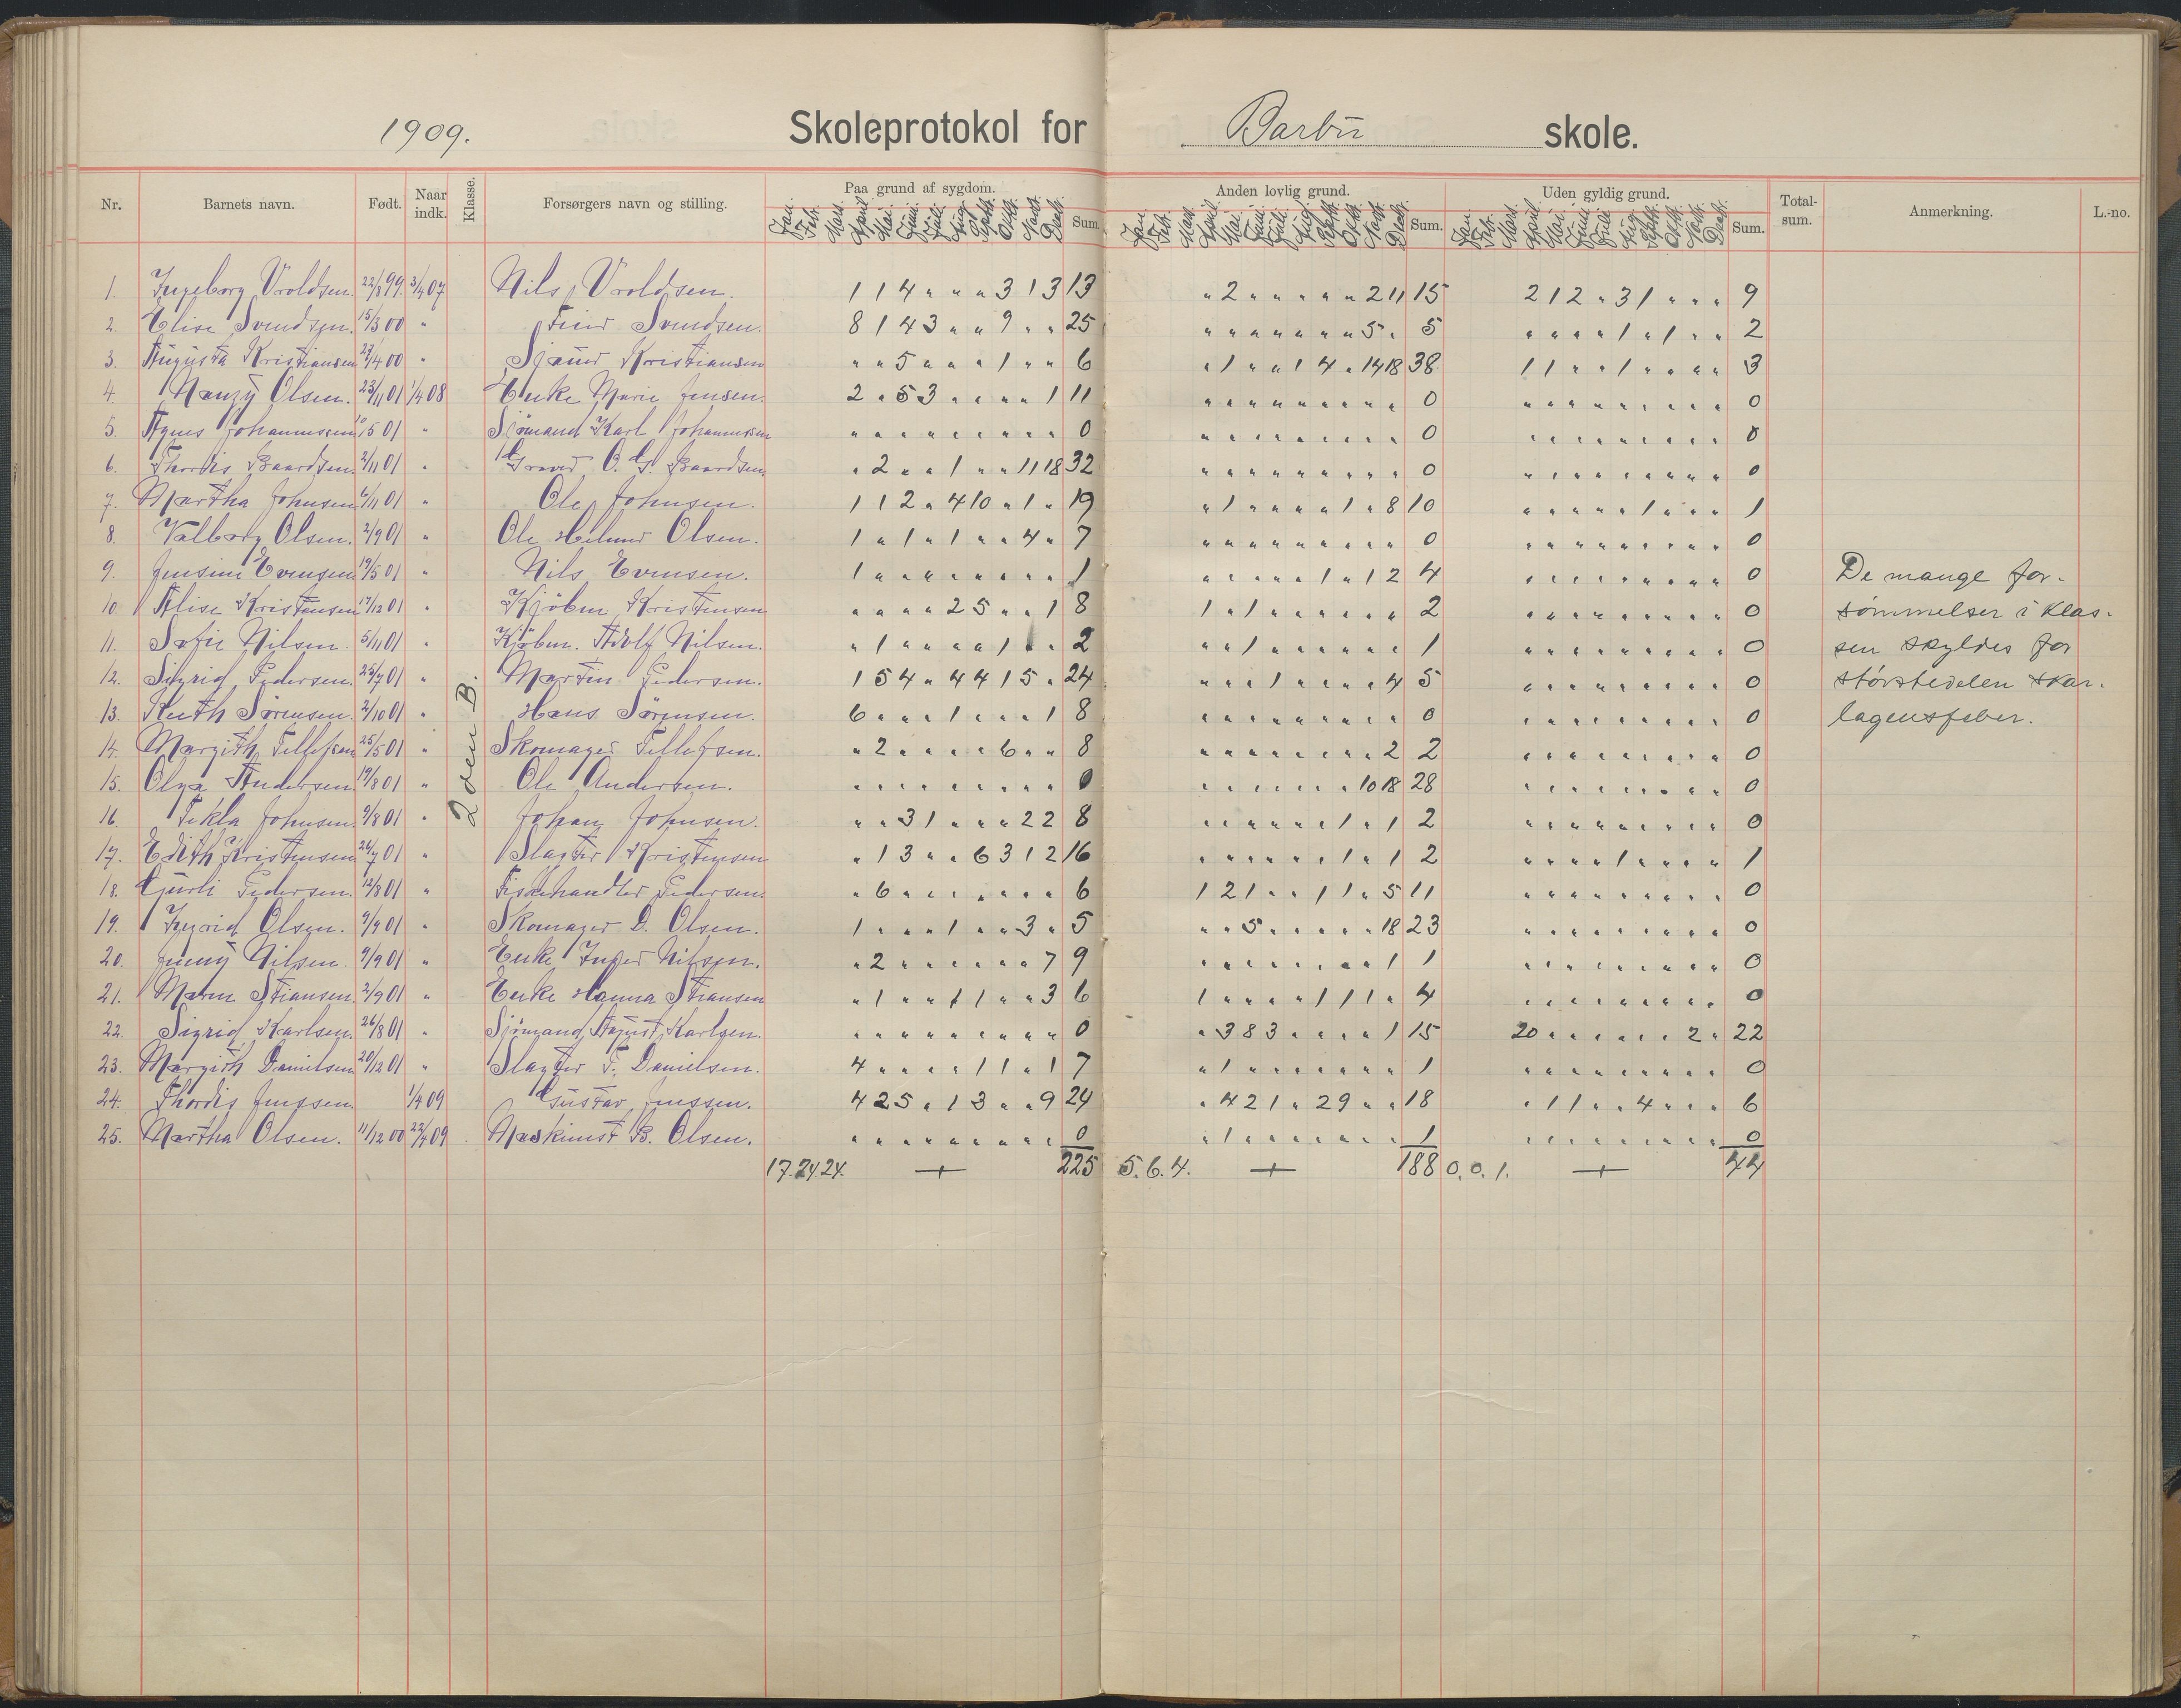 1909.
Skoleprotokol for Barbu skole.
Nr. Barnets navn. Født. Naar indk. Klasse. Forsørgers navn og stilling. Paa grund af sygdom. Sum Anden lovlig grund. Sum. Uden gyldig grund. Sum. Total-sum. Anmerkning. L.-no.
Jan. Feb. Mars. April Mai. Juni. Juli. Aug. Septb. Oktb. Novb. Decb. Jan. Feb. Mars. April Mai. Juni. Juli. Aug. Septb. Oktb. Novb. Decb. Jan. Feb. Mars. April Mai. Juni. Juli. Aug. Septb. Oktb. Novb. Decb.
1. Ingeborg Uroldsen. 22/8 99. 3/4 07 Nils Uroldsen. 1 1 4 " " " 3 1 3 13 " 2 " " " " " 2 11 15 2 1 2 " 3 1 " " " 9
2. Elise Svendsen. 15/3 00 " Svendsen. 8 1 4 3 " " 9 " " 25 " " " " " " " 5 " 5 " " " " 1 " 1 " " 2
3. Augusta Kristiansen 27/4 00 " Kristiansen " " 5 " " " 1 " " 6 " 1 " " 1 4 " 14 18 38 1 1 " " 1 " " " " 3
4. Nanzy Olsen. 23/11 01 1/4 08 Enke Marie Jensen. 2 " 5 3 " " " " 1 11 " " " " " " " " " 0 " " " " " " " " " 0
5. Agnes Johannessen 01 " Sjømand Karl Johannessen " " " " " " " " " 0 " " " " " " " " " 0 " " " " " " " " " 0
6. Thordis Baardsen. 2/11 01 " Graver O. G. Baardsen. " 2 " " 1 " " 11 18 32 " " " " " " " " " 0 " " " " " " " " " 0
7. Martha Johnsen 6/11 01 " Ole Johnsen. 1 1 2 " 4 10 " 1 " 19 " 1 " " " " 1 " 8 10 " " " " " 1 " " " 1
8. Valborg Olsen. 2/9 01 " Ole Helmer Olsen. 1 " 1 " 1 " " 4 " 7 " " " " " " " " " 0 " " " " " " " " " 0
9. Jensine Evensen 19/5 01 " Nils Evensen. 1 " " " " " " " " 1 " " " " " 1 " 1 2 4 " " " " " " " " " 0
10. Alise Kristensen 17/12 01 " Kjøbm. Kristensen " " " " 2 5 " " 1 8 1 " 1 " " " " " " 2 " " " " " " " " " 0
11. Sofie Nilsen. 5/11 01 " Kjøbm. Adolf Nilsen. " 1 " " " " 1 " " 2 " " 1 " " " " " " 1 " " " " " " " " " 0
12. Sigrid Pedersen. 25/7 01 " Martin Pedersen. 1 5 4 " 4 4 1 5 " 24 " " " 1 " " " " 4 5 " " " " " " " " " 0
13. Ruth Sørensen. 2/10 01 " Hans Sørensen. 6 " " " 1 " " " 1 8 " " " " " " " " " 0 " " " " " " " " " 0
14. Margith Tellefsen 25/5 01 " Skomager Tellefsen. " 2 " " " " 6 " " 8 " " " " " " " " 2 2 " " " " " " " " " 0
15. Olga Andersen. 19/8 01 " Ole Andersen. " " " " " " " " " 0 " " " " " " " 10 18 28 " " " " " " " " " 0
16. Tekla Johnsen. 9/8 01 " Johan Johnsen. " " 3 1 " " " 2 2 8 " " " " " " 1 " 1 2 " " " " " " " " " 0
17. Edith Kristensen 26/7 01 " Slagter Kristensen " 1 3 " " 6 3 1 2 16 " " " " " " 1 " 1 2 " " " " 1 " " " " 1
18. Gurli Pedersen. 12/8 01 " Fiskehandler Pedersen. " 6 " " " " " " " 6 1 2 1 " " 1 1 " 5 11 " " " " " " " " " 0
19. Ingrid Olsen. 9/9 01 " Skomager D. Olsen. 1 " " " 1 " " 3 " 5 " " 5 " " " " " 18 23 " " " " " " " " " 0
20. Jenny Nilsen. 9/9 01 " Enke Inger Nilsen. " 2 " " " " " " 7 9 " " " " " " " " 1 1 " " " " " " " " " 0
21. Maren Stiansen. 2/9 01 " Enke Hanna Stiansen " 1 " " 1 1 " " 3 6 1 " " " " 1 1 1 " 4 " " " " " " " " " 0
22. Sigrid Karlsen. 26/8 01 " Sjømand August Karlsen. " " " " " " " " " 0 " 3 8 3 " " " " 1 15 20 " " " " " " 2 " 22
23. Margith Danielsen 20/12 01 " Slagter F. Danielsen. 4 " " " " 1 1 " 1 7 " 1 " " " " " " " 1 " " " " " " " " " 0
24. Thordis Jenssen. 1/4 09 Gustav Jenssen. 4 2 5 " 1 3 " " 9 24 " 4 2 1 " 2 9 " " 18 " 1 1 " " 4 " " " 6
25. Martha Olsen. 11/12 00 22/4 09 Maskinist B. Olsen. " " " " " " " " " 0 " 1 " " " " " " " 1 " " " " " " " " " 0
17. 24 24. + 225 5. 6. 4. + 188 0. 0. 1. + 44
2den B.
De mange for-
sømmelser i klas-
sen skyldes for
størstedelen skar-
lagensfeber.